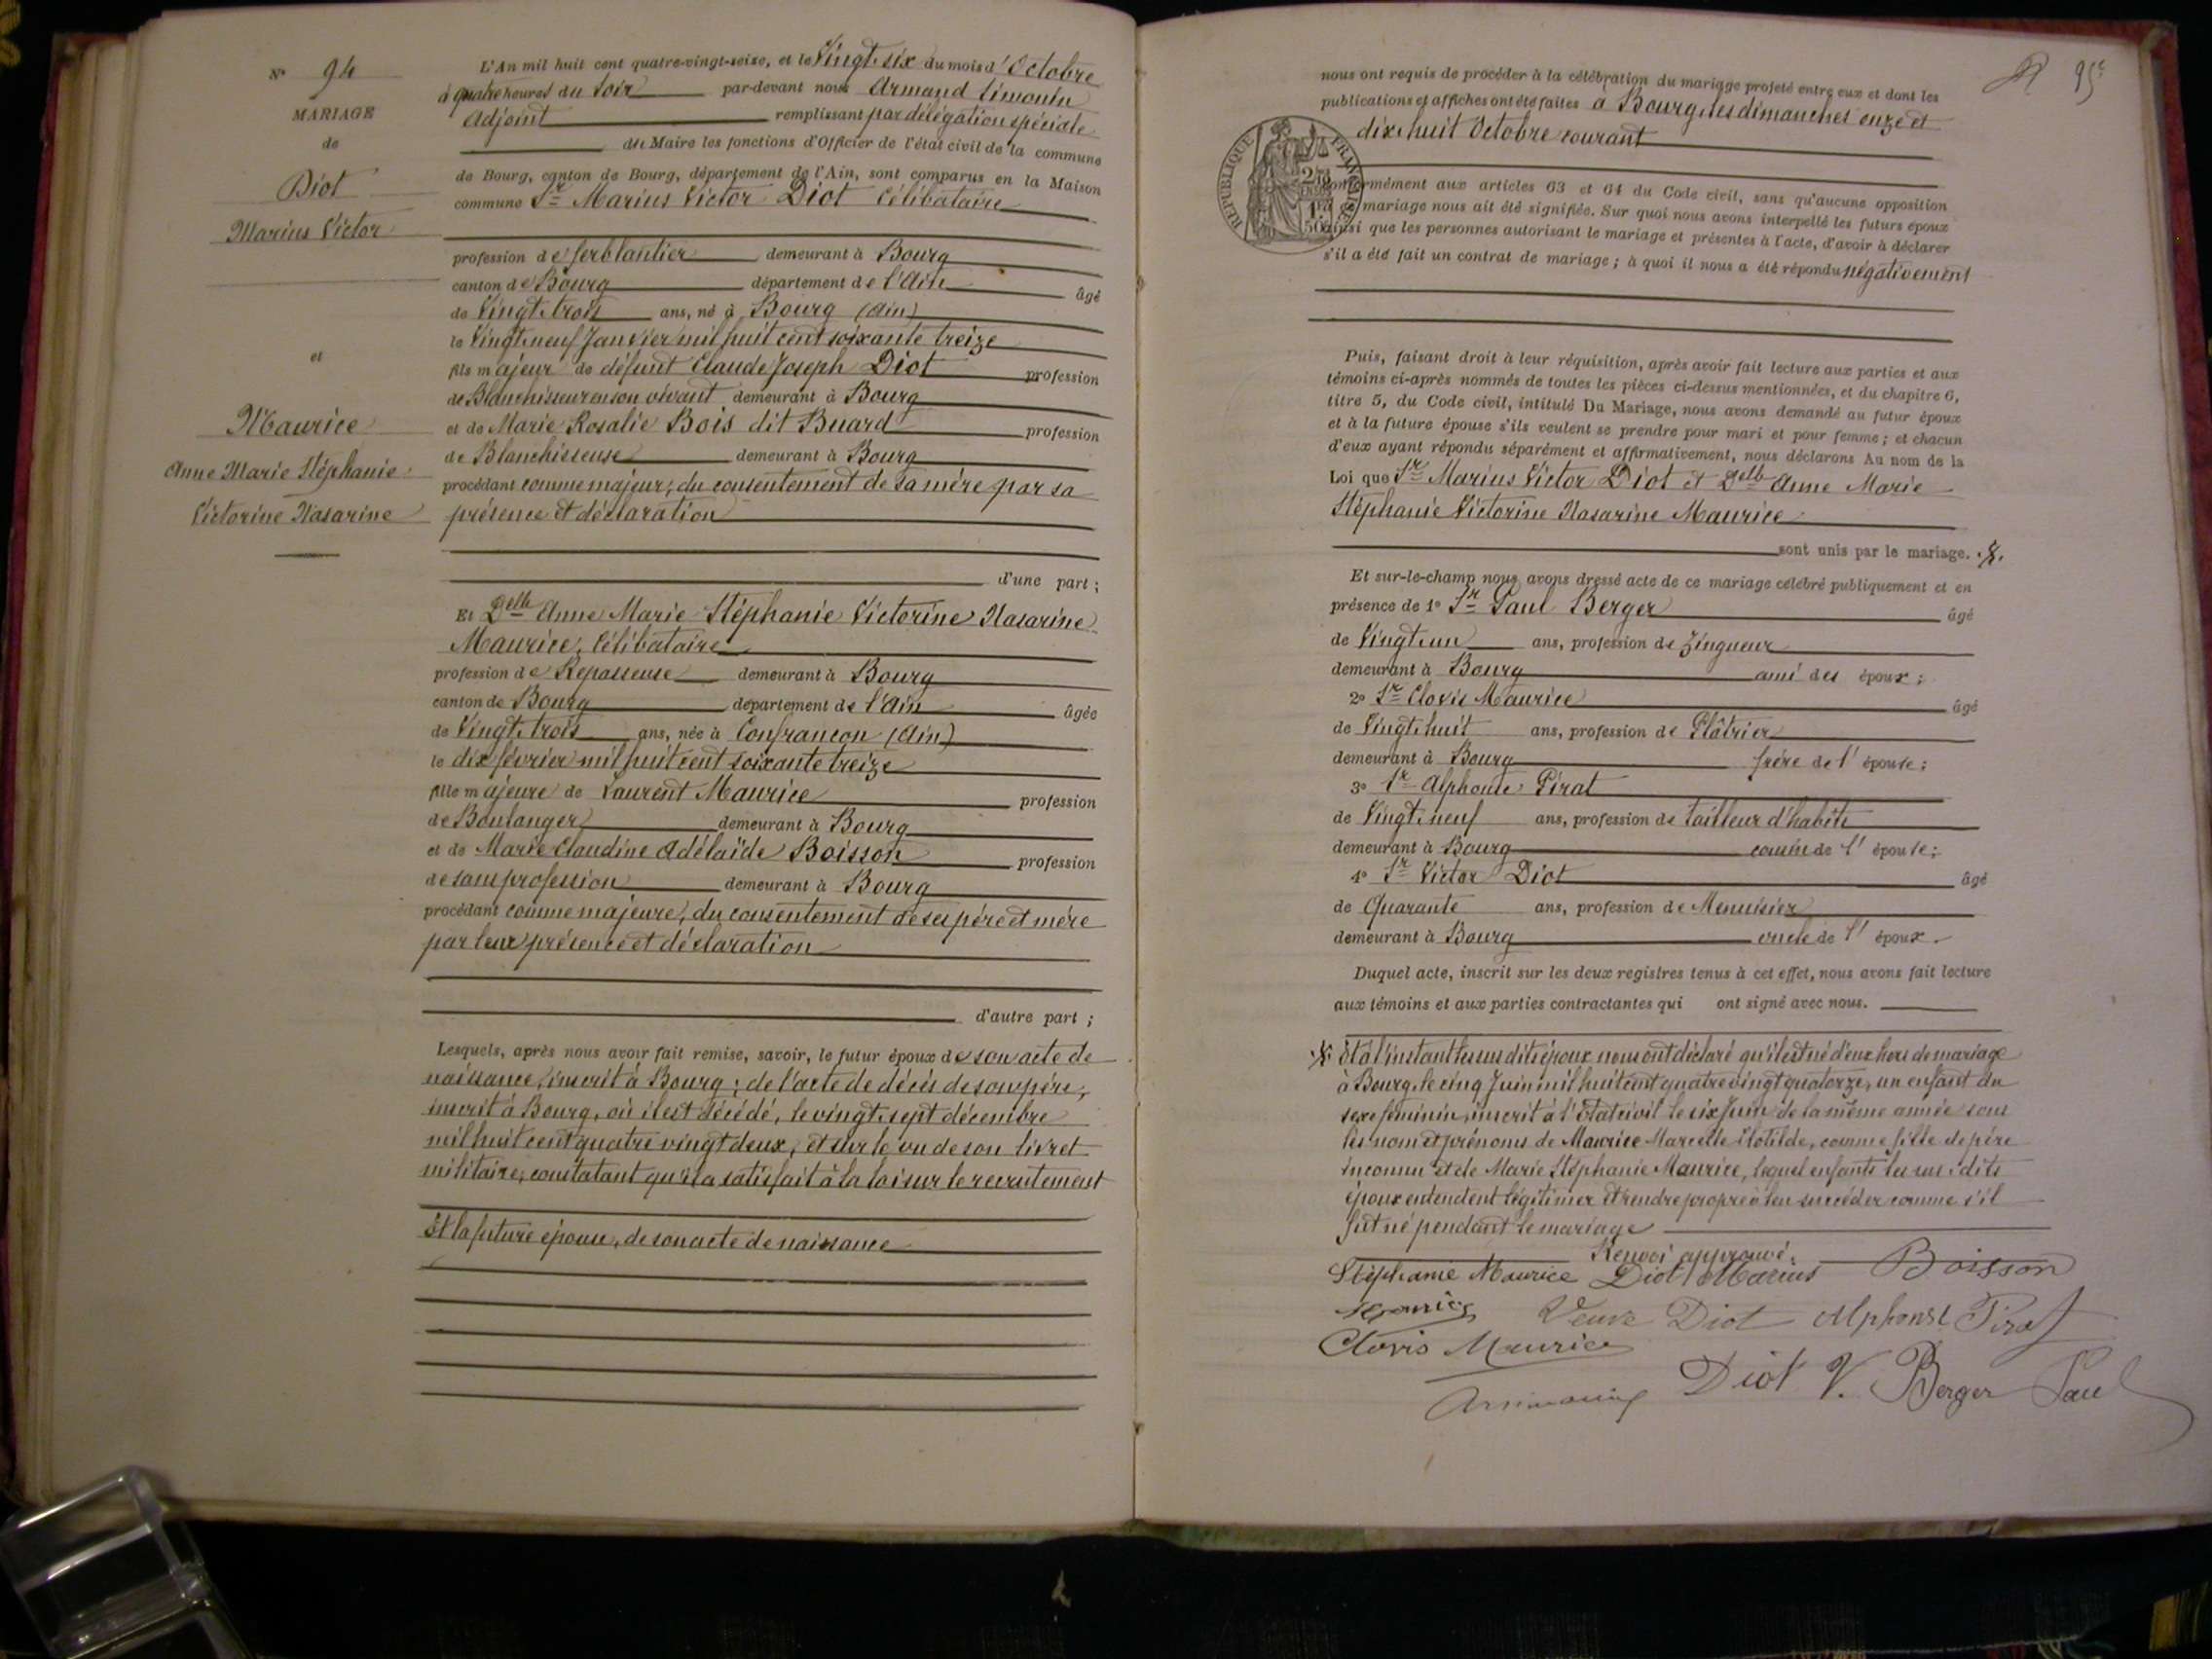 N° 94
MARIAGE
de
Diot
Marius Victor
et
Maurice
Anne Marie Stéphanie
Victorine Nasarine
L'An mil huit cent quatre-vingt-seize, et le Vingt-six du mois d'Octobre
à quatre heures du soir par-devant nous Armand
Adjoint remplissant par délégation spéciale
du Maire les fonctions d'Officier de l'état civil de la commune
de Bourg, canton de Bourg, département de l'Ain, sont comparus en la Maison
commune Sr Marius Victor Diot Célibataire
profession de ferblantier demeurant à Bourg
canton de Bourg département de l'Ain âgé
de Vingt-trois ans, né à Bourg (Ain)
le Vingt-neuf Janvier mil huit cent soixante treize
fils majeur de défunt Claude Joseph Diot profession
de Blanchisseur en son vivant demeurant à Bourg
et de Marie Rosalie Bois dit Buard profession
de Blanchisseuse demeurant à Bourg
procédant comme majeur, du consentement de sa mère par sa
présence et déclaration
d'une part ;
Et Delle Anne Marie Stéphanie Victorine Nasarine
Maurice, Célibataire
profession de Repasseuse demeurant à Bourg
canton de Bourg département de l'Ain âgée
de Vingt-trois ans, née à Confrançon (Ain)
le dix février mil huit cent soixante treize
fille majeure de Laurent Maurice profession
de Boulanger demeurant à Bourg
et de Marie Claudine Adélaïde Boisson profession
de sans profession demeurant à Bourg
procédant comme majeure, du consentement de ses père et mère
par leur présence et déclaration
d'autre part ;
Lesquels, après nous avoir fait remise, savoir, le futur époux de son acte de
naissance, inscrit à Bourg ; de l'acte de décès de son père,
inscrit à Bourg, où il est décédé, le vingt-sept décembre
mil huit cent quatre vingt deux, et sur le vu de son livret
militaire, constatant qu'il a satisfait à la loi sur le recrutement
Et la future épouse, de son acte de naissance
95e
nous ont requis de procéder à la célébration du mariage projeté entre eux et dont les
publications et affiches ont été faites à Bourg, les dimanches onze et
dix-huit Octobre courant
RÉPUBLIQUE FRANÇAISE
conformément aux articles 63 et 64 du Code civil, sans qu'aucune opposition
mariage nous ait été signifiée. Sur quoi nous avons interpellé les futurs époux
ainsi que les personnes autorisant le mariage et présentes à l'acte, d'avoir à déclarer
s'il a été fait un contrat de mariage ; à quoi il nous a été répondu négativement
Puis, faisant droit à leur réquisition, après avoir fait lecture aux parties et aux
témoins ci-après nommés de toutes les pièces ci-dessus mentionnées, et du chapitre 6,
titre 5, du Code civil, intitulé Du Mariage, nous avons demandé au futur époux
et à la future épouse s'ils veulent se prendre pour mari et pour femme ; et chacun
d'eux ayant répondu séparément et affirmativement, nous déclarons Au nom de la
Loi que Sr Marius Victor Diot et Delle Anne Marie
Stéphanie Victorine Nasarine Maurice
sont unis par le mariage.
Et sur-le-champ nous avons dressé acte de ce mariage célébré publiquement et en
présence de 1° Sr Paul Berger âgé
de Vingt-un ans, profession de Zingueur
demeurant à Bourg ami des époux ;
2° Sr Clovis Maurice âgé
de Vingt-huit ans, profession de Plâtrier
demeurant à Bourg frère de l'épouse ;
3° Sr Alphonse Pirat
de Vingt-neuf ans, profession de tailleur d'habits
demeurant à Bourg cousin de l'épouse ;
4° Sr Victor Diot âgé
de Quarante ans, profession de Menuisier
demeurant à Bourg oncle de l'époux.
Duquel acte, inscrit sur les deux registres tenus à cet effet, nous avons fait lecture
aux témoins et aux parties contractantes qui ont signé avec nous.
Et à l'instant les susdits époux nous ont déclaré qu'il est né d'eux hors de mariage
à Bourg, le cinq Juin mil huit cent quatre vingt quatorze, un enfant du
sexe féminin, inscrit à l'État civil le six Juin de la même année sous
les nom et prénoms de Maurice Marcelle Clotilde, comme fille de père
inconnu et de Marie Stéphanie Maurice, lequel enfant les susdits
époux entendent légitimer et rendre propre à leur succéder comme s'il
fut né pendant le mariage
Renvoi approuvé.
Stéphanie Maurice Diot Marius Boisson
Maurice Veuve Diot Alphonse Pirat
Clovis Maurice
Diot V. Berger Paul